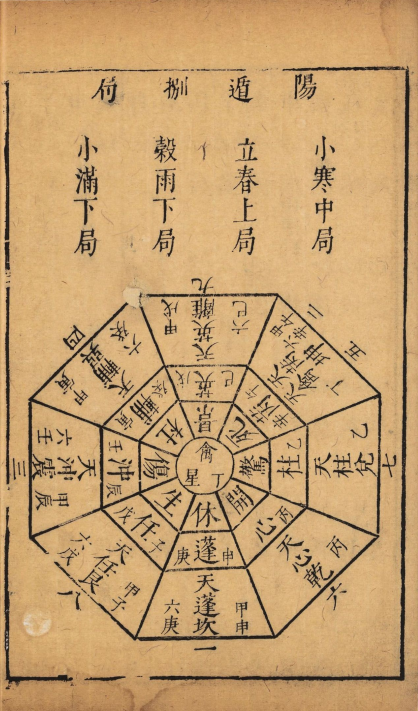 陽遁捌
小寒中局
立春上局
穀雨下局
小滿下局
九
六己
天英離
甲戌
己
英
戌
景
二
五
六辛
甲午
天芮坤
天禽
丁
辛
芮
午
死
七
乙
天柱兌
乙
柱
驚
六
丙
天心乾
丙
心
開
一
甲申
天蓬坎
六庚
申
蓬
庚
休
八
甲子
天任艮
六戊
子
任
戊
生
三
甲辰
天沖震
六壬
辰
沖
壬
傷
四
六癸
天輔巽
甲寅
癸
輔
寅
杜
禽星
丁